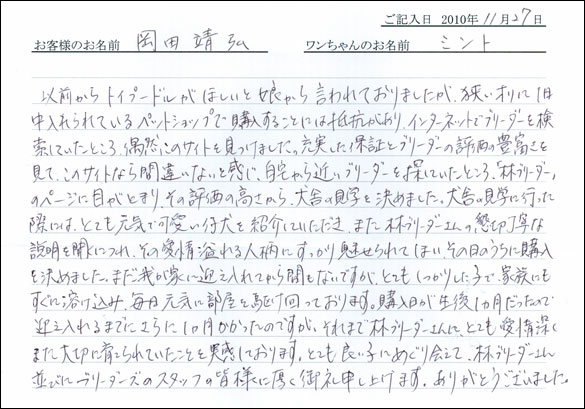 ご記入日 2010年 11月27日
お客様のお名前 岡田靖弘 ワンちゃんのお名前 ミント
以前からトイプードルがほしいと娘から言われておりましたが、狭いオリに1日
中入れられているペットショップで購入することには抵抗があり、インターネットでブリーダーを検
索していたところ、偶然、このサイトを見つけました。充実した保証とブリーダーの評価の豊富さを
見て、このサイトなら間違いないと感じ、自宅から近いブリーダーを探していたところ、「林ブリーダー」
のページに目がとまり、その評価の高さから、犬舎の見学を決めました。犬舎の見学に行った
際には、とても元気で可愛い仔犬を紹介していただき、また林ブリーダーさんの懇切丁寧な
説明を聞くにつれ、その愛情溢れる人柄にすっかり魅せられてしまい、その日のうちに購入
を決めました。まだ我が家に迎え入れてから間もないですが、とてもしっかりした子で、家族にも
すぐに溶け込み、毎日元気に部屋を駆け回っております。購入日が生後1か月だったので
迎え入れるまでにさらに1か月かかったのですが、それまで林ブリーダーさんに、とても愛情深く
また大切に育てられていたことを実感しております。とても良い子にめぐり会えて、林ブリーダーさん
並びにブリーダーズのスタッフの皆様に厚く御礼申し上げます。ありがとうございました。